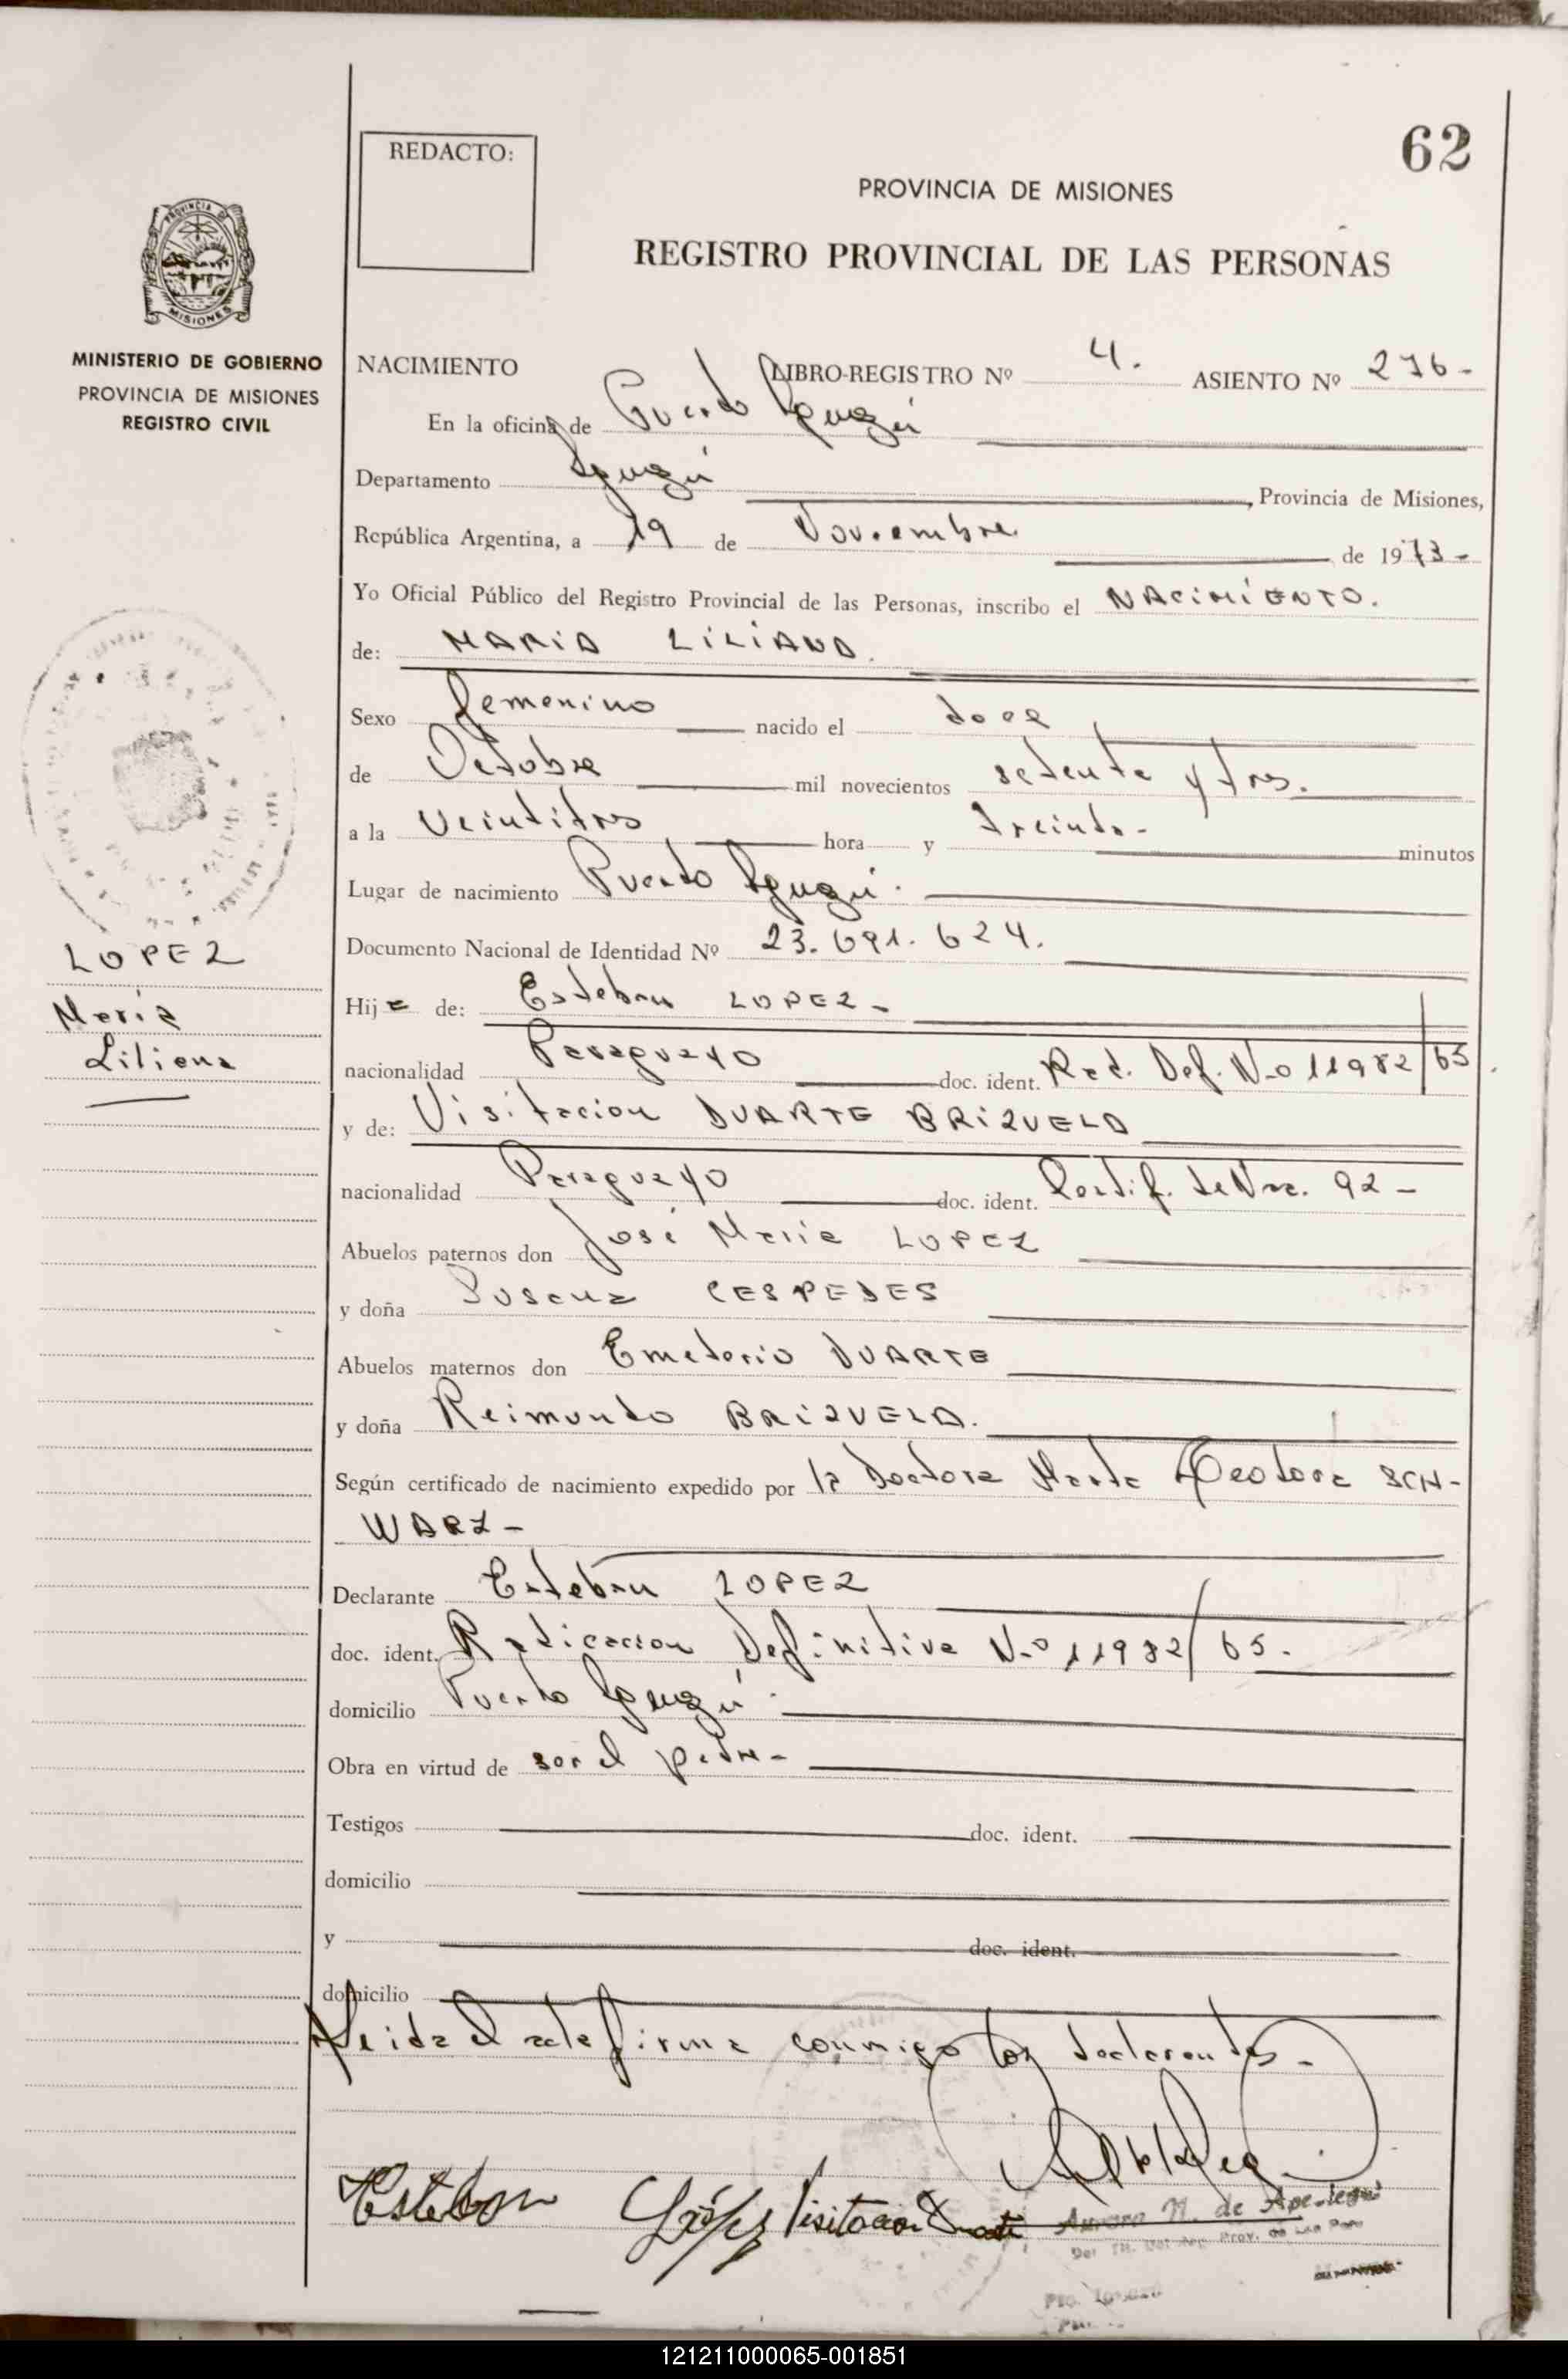 62
REDACTO:
PROVINCIA DE MISIONES
REGISTRO PROVINCIAL DE LAS PERSONAS
PROVINCIA DE
MISIONES
MINISTERIO DE GOBIERNO
PROVINCIA DE MISIONES
REGISTRO CIVIL
NACIMIENTO LIBRO-REGISTRO Nº 4. ASIENTO Nº 276-
En la oficina de Puerto Iguazú
Departamento Iguazú, Provincia de Misiones,
República Argentina, a 19 de Noviembre de 1973-
Yo Oficial Público del Registro Provincial de las Personas, inscribo el NACIMIENTO.
de: MARIA LILIANA.
Sexo femenino nacido el doce
de Octubre mil novecientos setenta y tres.
a la Veintitres hora y treinta- minutos
Lugar de nacimiento Puerto Iguazú.
Documento Nacional de Identidad Nº 23.691.624.
LOPEZ
Maria
Liliana
Hija de: Esteban LOPEZ-
nacionalidad Paraguayo doc. ident. Rad. Def. N-o 11982/65.
y de: Visitacion DUARTE BRIZUELA
nacionalidad Paraguayo doc. ident. Certif. de Nac. 92-
Abuelos paternos don José Maria LOPEZ
y doña Susana CESPEDES
Abuelos maternos don Emeterio DUARTE
y doña Reimunda BRIZUELA.
Según certificado de nacimiento expedido por la Doctora Marta Teodora SCH-
WARZ-
Declarante Esteban LOPEZ
doc. ident. Radicacion Definitiva N-o 11982/65.
domicilio Puerto Iguazú.
Obra en virtud de ser el padre-
Testigos doc. ident.
domicilio
y doc. ident.
domicilio
Leida el acta firma conmigo los declarantes-
Esteban López Visitacion Duarte
Aurora M. de
121211000065-001851